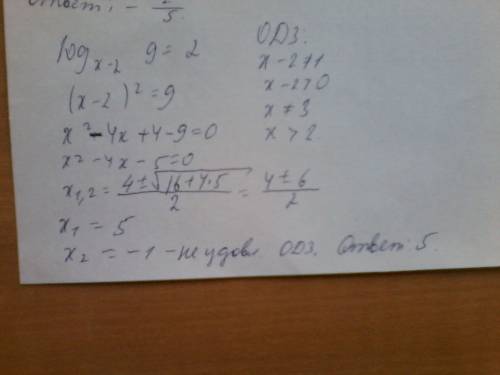 Ответ: - 2/5.
log_{x-2} 9 = 2
(x-2)² = 9
x² - 4x + 4 - 9 = 0
x² - 4x - 5 = 0
x_{1,2} = (4 ± √(16 + 4·5))/2 = (4 ± 6)/2
x₁ = 5
x₂ = -1 - не удовл ОДЗ. Ответ: 5.
ОДЗ:
x - 2 ≠ 1
x - 2 > 0
x ≠ 3
x > 2